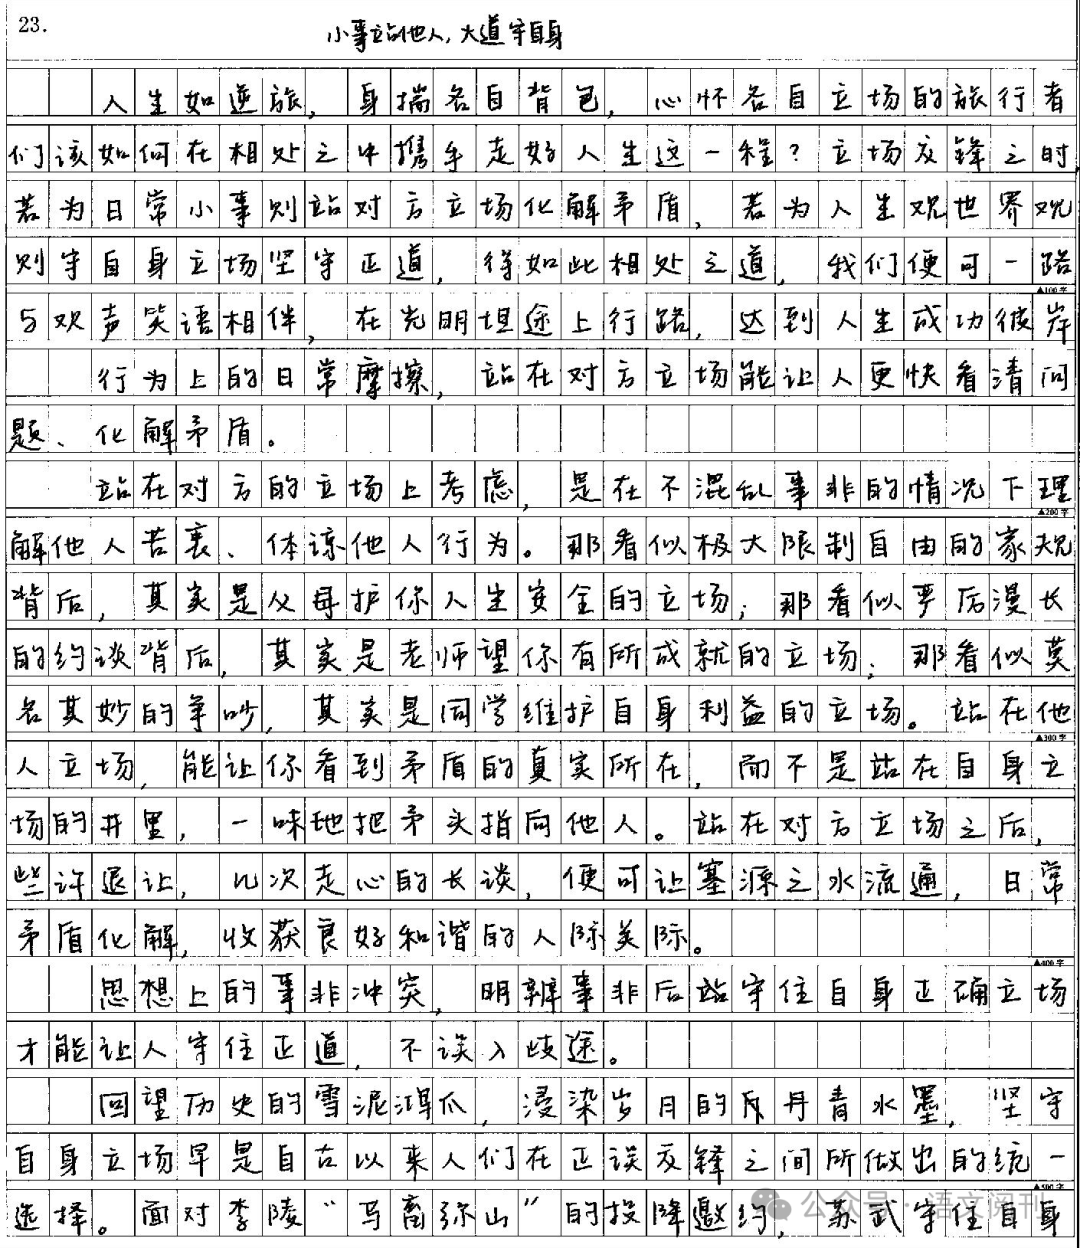 23.
小事立站他人,大道守自身
人生如逆旅,身揣各自背包,心怀各自立场的旅行者
们该如何在相处之中携手走好人生这一程?立场交锋之时,
若为日常小事则站对方立场化解矛盾,若为人生观世界观
则守自身立场坚守正道,得如此相处之道,我们便可一路
▲100字
与欢声笑语相伴,在光明坦途上行路,达到人生成功彼岸
行为上的日常摩擦,站在对方立场能让人更快看清问
题、化解矛盾。
站在对方的立场上考虑,是在不混乱事非的情况下理
▲200字
解他人苦衷、体谅他人行为。那看似极大限制自由的家规
背后,其实是父母护你人生安全的立场;那看似严厉漫长
的约谈背后,其实是老师望你有所成就的立场;那看似莫
名其妙的争吵,其实是同学维护自身利益的立场。站在他
▲300字
人立场,能让你看到矛盾的真实所在,而不是站在自身立
场的井里,一味地把矛头指向他人。站在对方立场之后,
些许退让,几次走心的长谈,便可让塞源之水流通,日常
矛盾化解,收获良好和谐的人际美际。
▲400字
思想上的事非冲突,明辨事非后站守住自身正确立场
才能让人守住正道,不误入歧途。
回望历史的雪泥鸿爪,浸染岁月的丹青水墨,坚守
自身立场早是自古以来人们在正误交锋之间所做出的统一
▲500字
选择。面对李陵“马畜弥山”的投降邀约,苏武守住自身
公众号·语文阅刊